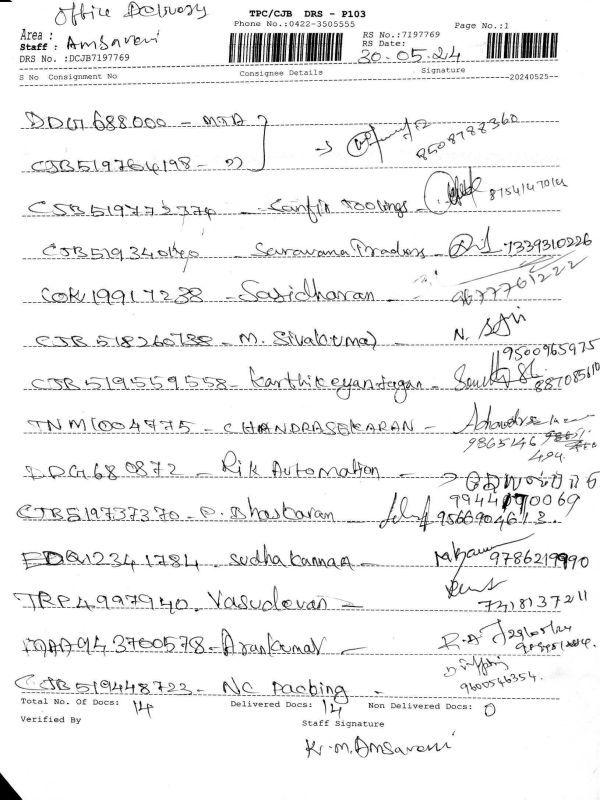 Office Delivery
TPC/CJB DRS - P103
Phone No.:0422-3505555 Page No.:1
Area :
Staff : Amsaveni
DRS No. :DCJB7197769
RS No.:7197769
RS Date: 30.05.24
S No Consignment No Consignee Details Signature 20240525
DDG1688000 - MTA
8508788360
CJB519764198 - "
CJB519773774 - Canfix Toolings -
CJB519340140 - Saravana Traders 7339310226
COK19917238 - Sasidharan - 9677761222
CJB518260788 - M. Sivakumar
9500965975
CJB519559558 - Karthikeyan Jagan -
TNM1004775 - CHANDRASEKARAN -
9865146
494.
DDG1680872 - Rik Automation -
9944170069
CJB519737370 - P. Bhaskaran 9566904613.
12341784 - Sudhakannan 9786219990
TRP4997940 - Vasudevan - 7418137211
MAA943760578 - Arankumar -
CJB519448723 - NC Packing - 9600546354.
Total No. Of Docs: 14 Delivered Docs: 14 Non Delivered Docs: 0
Verified By Staff Signature
K.M.Amsaveni